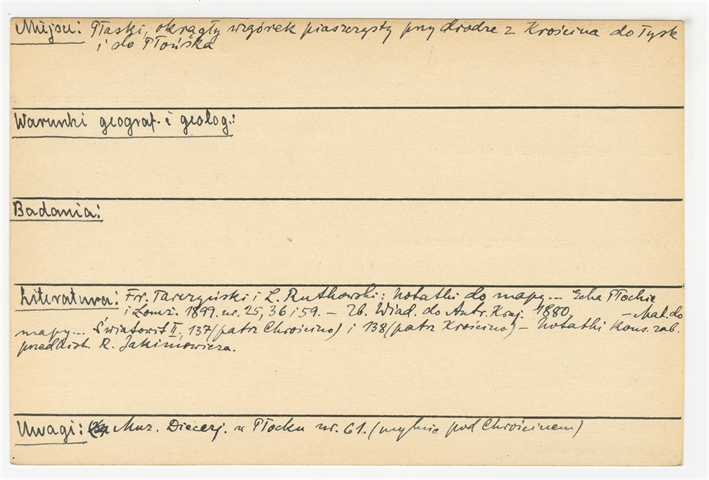 Miejsce: Płaski, okrągły wzgórek piaszczysty przy drodze z Krościna do Tysk
i do Płońska
Warunki geograf. i geolog.:
Badania:
Literatura: Fr. Tarczyński i L. Rutkowski: Notatki do mapy... Echa Płockie
i Łomż. 1899. nr. 25, 36 i 59. – Zb. Wiad. do Antr. Kraj. 1880. – Mat. do
mapy... Światowit I, 137 (patrz Chrościno) i 138 (patrz Krościno) – Notatki Kons. zab.
przedhist. R. Jakimowicza.
Uwagi: Muz. Diecezj. w Płocku nr. 61. (mylnie pod Chrościnem)